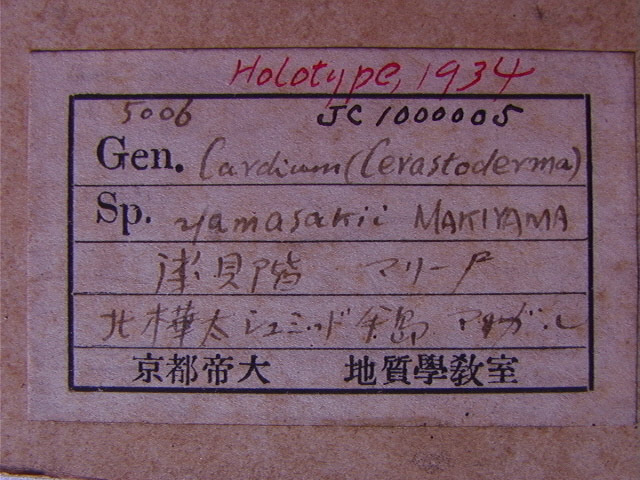 Holotype, 1934
5006 JC 1000005
Gen. Cardium (Cerastoderma)
Sp. yamasakii MAKIYAMA
階 マリー
北樺太シュミッド半島
京都帝大 地質學教室